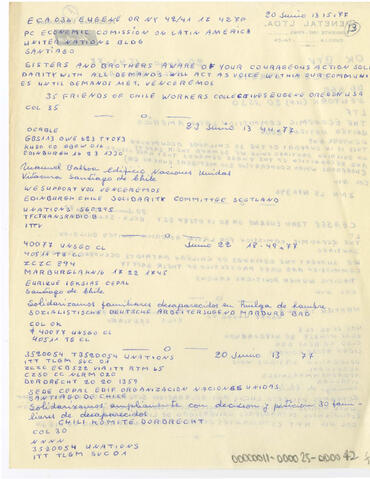 ECA 0301 EUGENE OR NY 42/41 12 4270
20 Junio 1315.77
13
PC ECONOMIC COMMISSION ON LATIN AMERICA
UNITED NATIONS BLDG
SANTIAGO
SISTERS AND BROTHERS AWARE OF YOUR COURAGEOUS ACTION SOLI
DARITY WITH ALL DEMANDS WILL ACT AS VOICE WITHIN OUR COMMUNI
ES UNTIL DEMANDS MET. VENCEREMOS
35 FRIENDS OF CHILE WORKERS COLLECTIVES EUGENE OREGON USA
COL 35
O
OCABLE
Junio 13 44.77
EDINBURGH
Manuel Balboa Edificio Naciones Unidas
Vitacura Santiago de Chile
WE SUPPORT YOU VENCEREMOS
EDINBURGH CHILE SOLIDARITY COMMITTEE SCOTLAND
UNATIONS
TFCTRANSRADIO B
ITTV
O
40077 UNSGO CL
Junio 22 18.49.77
40511 TS CL
ZCZC
17 22 1845
ENRIQUE IGLESIAS CEPAL
Santiago de Chile
Solidarizamos familiares desaparecidos en Huelga de hambre
SOZIALISTISCHE DEUTSCHE ARBEITERJUGEND MARBURG BRD
COL OK
40077 UNSGO CL
40511 TS CL
O
3520054 UNATIONS
20 Junio 13 77
ITT TLGM SVC 01
VIA ITT
DORDRECHT 20 20 1359
SEDE CEPAL EDIF ORGANIZACION NACIONES UNIDAS
SANTIAGO DE CHILE
Solidarizamos ampliamente con decision y peticion 30 fami-
liares de desaparecidos
CHILI KOMITE DORDRECHT
COL 30
NNNN
3520054 UNATIONS
ITT TLGM SVC 01
00000011-000025-000042